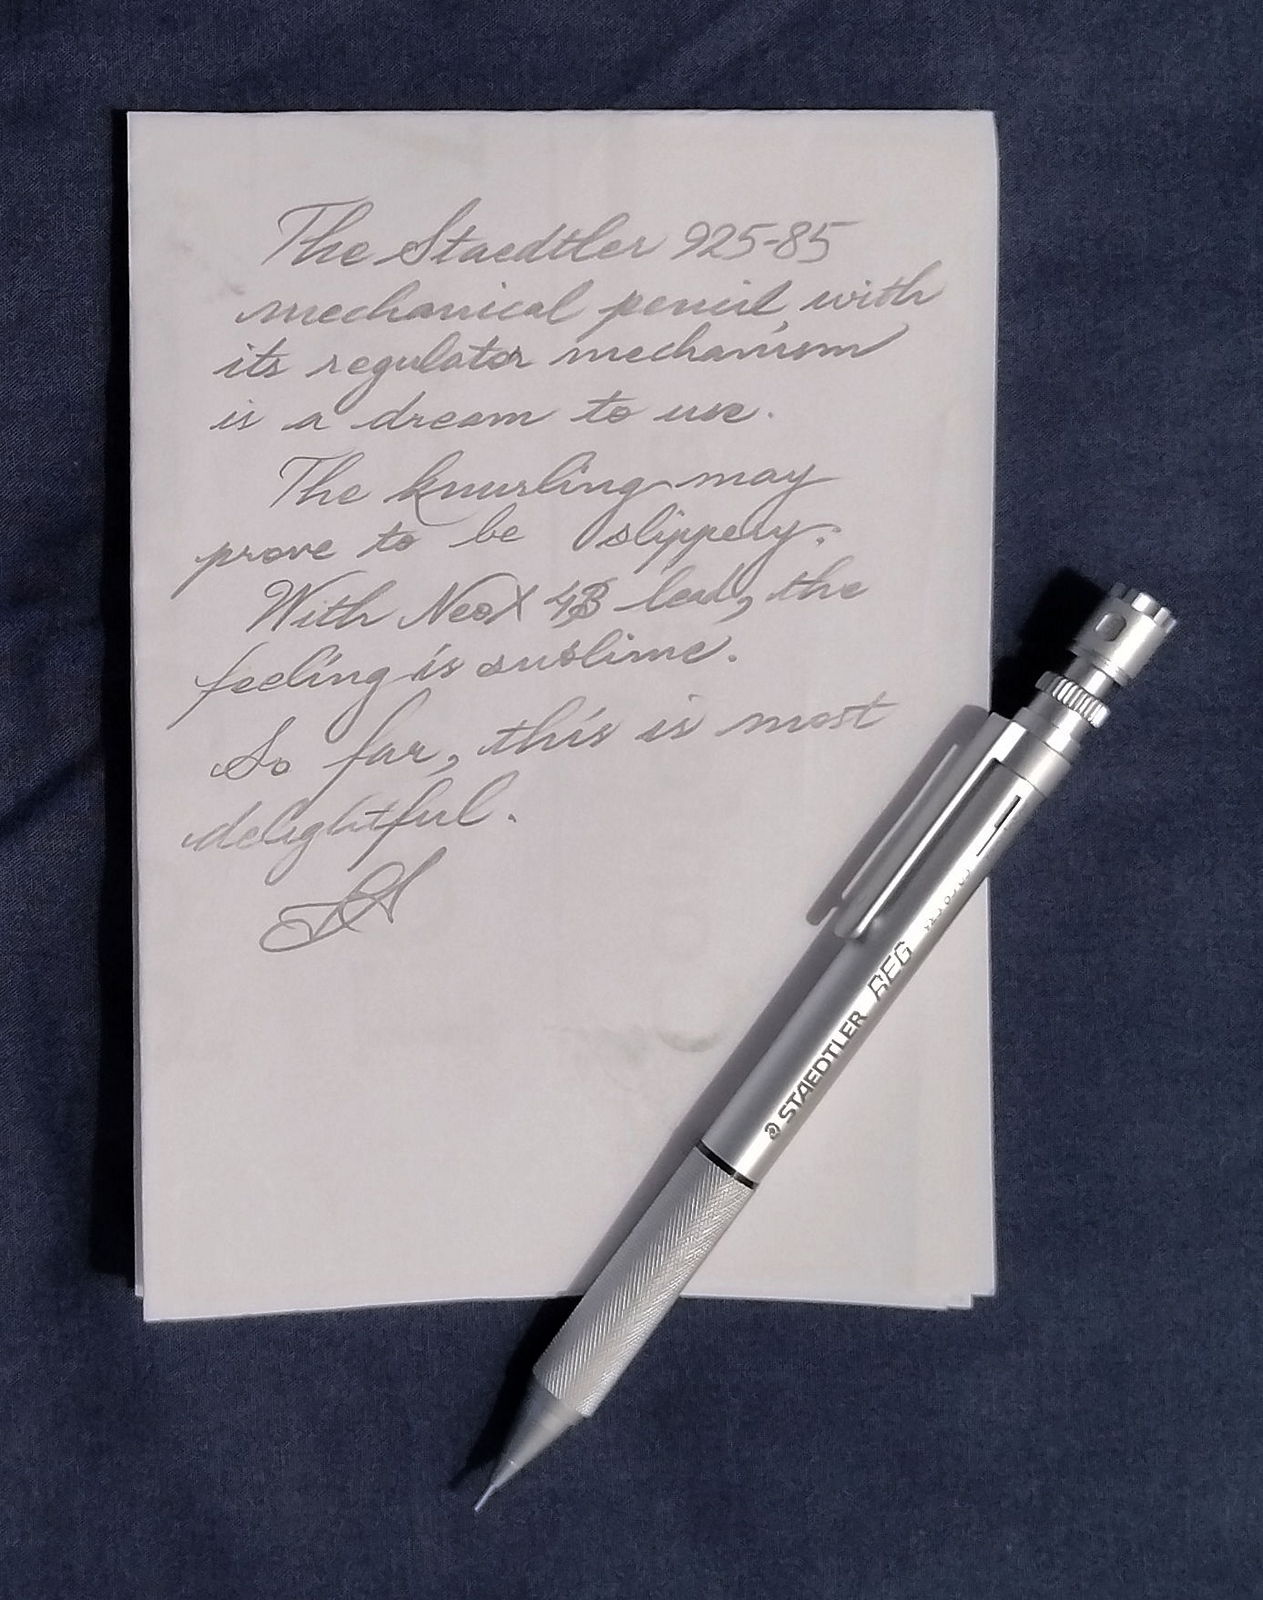 The Staedtler 925-85
mechanical pencil with
its regulator mechanism
is a dream to use.
The knurling may
prove to be slippery.
With NeoX 4B lead, the
feeling is sublime.
So far, this is most
delightful.
STAEDTLER REG